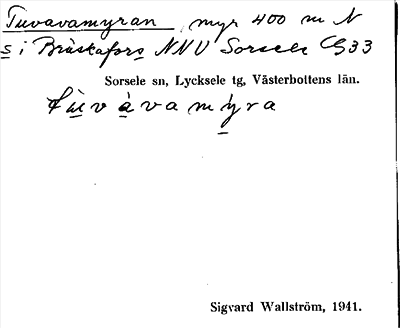 Tuvavamyran, myr 400 m N
s i Bräskafors NNV Sorsele CG33
Sorsele sn, Lycksele tg, Västerbottens län.
tùvàvamy̌ra
Sigvard Wallström, 1941.